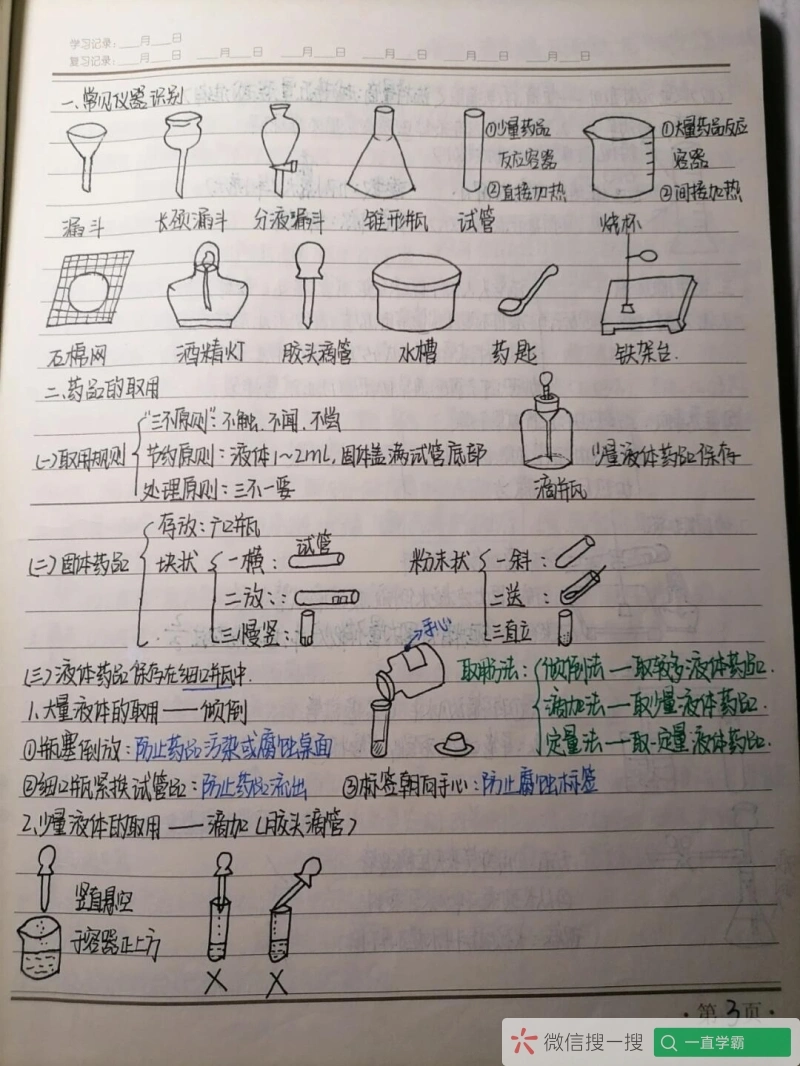 学习记录：___月___日
复习记录：___月___日 ___月___日 ___月___日 ___月___日 ___月___日 ___月___日
一、常见仪器识别
①少量药品反应容器
②直接加热
①大量药品反应容器
②间接加热
漏斗 长颈漏斗 分液漏斗 锥形瓶 试管 烧杯
石棉网 酒精灯 胶头滴管 水槽 药匙 铁架台.
二、药品的取用
(一)取用规则
"三不原则"：不触、不闻、不尝
节约原则：液体1~2mL，固体盖满试管底部
处理原则：三不一要
少量液体药品保存
滴瓶
(二)固体药品
存放：广口瓶
块状
一横： 试管
二放：
三慢竖：
粉末状
一斜：
二送：
三直立
手心
(三)液体药品保存在细口瓶中.
取用方法：
倾倒法—取较多液体药品.
滴加法—取少量液体药品.
定量法—取一定量液体药品.
1、大量液体的取用——倾倒
①瓶塞倒放：防止药品污染或腐蚀桌面
②细口瓶紧挨试管口：防止药品流出 ③标签朝向手心：防止腐蚀标签
2、少量液体的取用——滴加（胶头滴管）
竖直悬空
于容器正上方
× ×
·第3页·
微信搜一搜 一直学霸